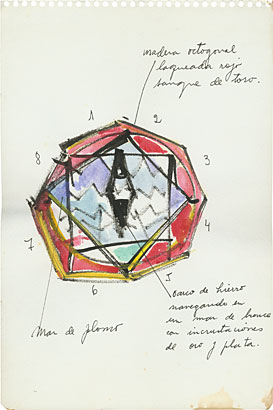 madera octogonal
laqueada rojo
sangre de toro.
1
2
8
3
7
4
6
5
mar de plomo
barco de hierro
navegando en
un mar de bronce
con incrustaciones
de oro y plata.